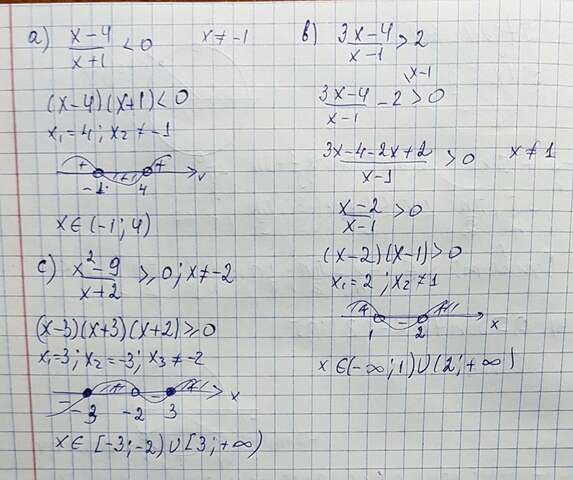 a) x-4/x+1 < 0   x ≠ -1
(x-4)(x+1) < 0
x₁ = 4; x₂ ≠ -1
+ - + x
-1 4
x ∈ (-1; 4)
c) x²-9/x+2 ≥ 0; x ≠ -2
(x-3)(x+3)(x+2) ≥ 0
x₁=3; x₂ = -3; x₃ ≠ -2
- + - + x
-3 -2 3
x ∈ [-3; -2) ∪ [3; +∞)
b) 3x-4/x-1 > 2
3x-4/x-1 - 2 > 0
\x-1
3x-4-2x+2/x-1 > 0   x ≠ 1
x-2/x-1 > 0
(x-2)(x-1) > 0
x₁ = 2; x₂ ≠ 1
+ - + x
1 2
x ∈ (-∞; 1) ∪ (2; +∞)